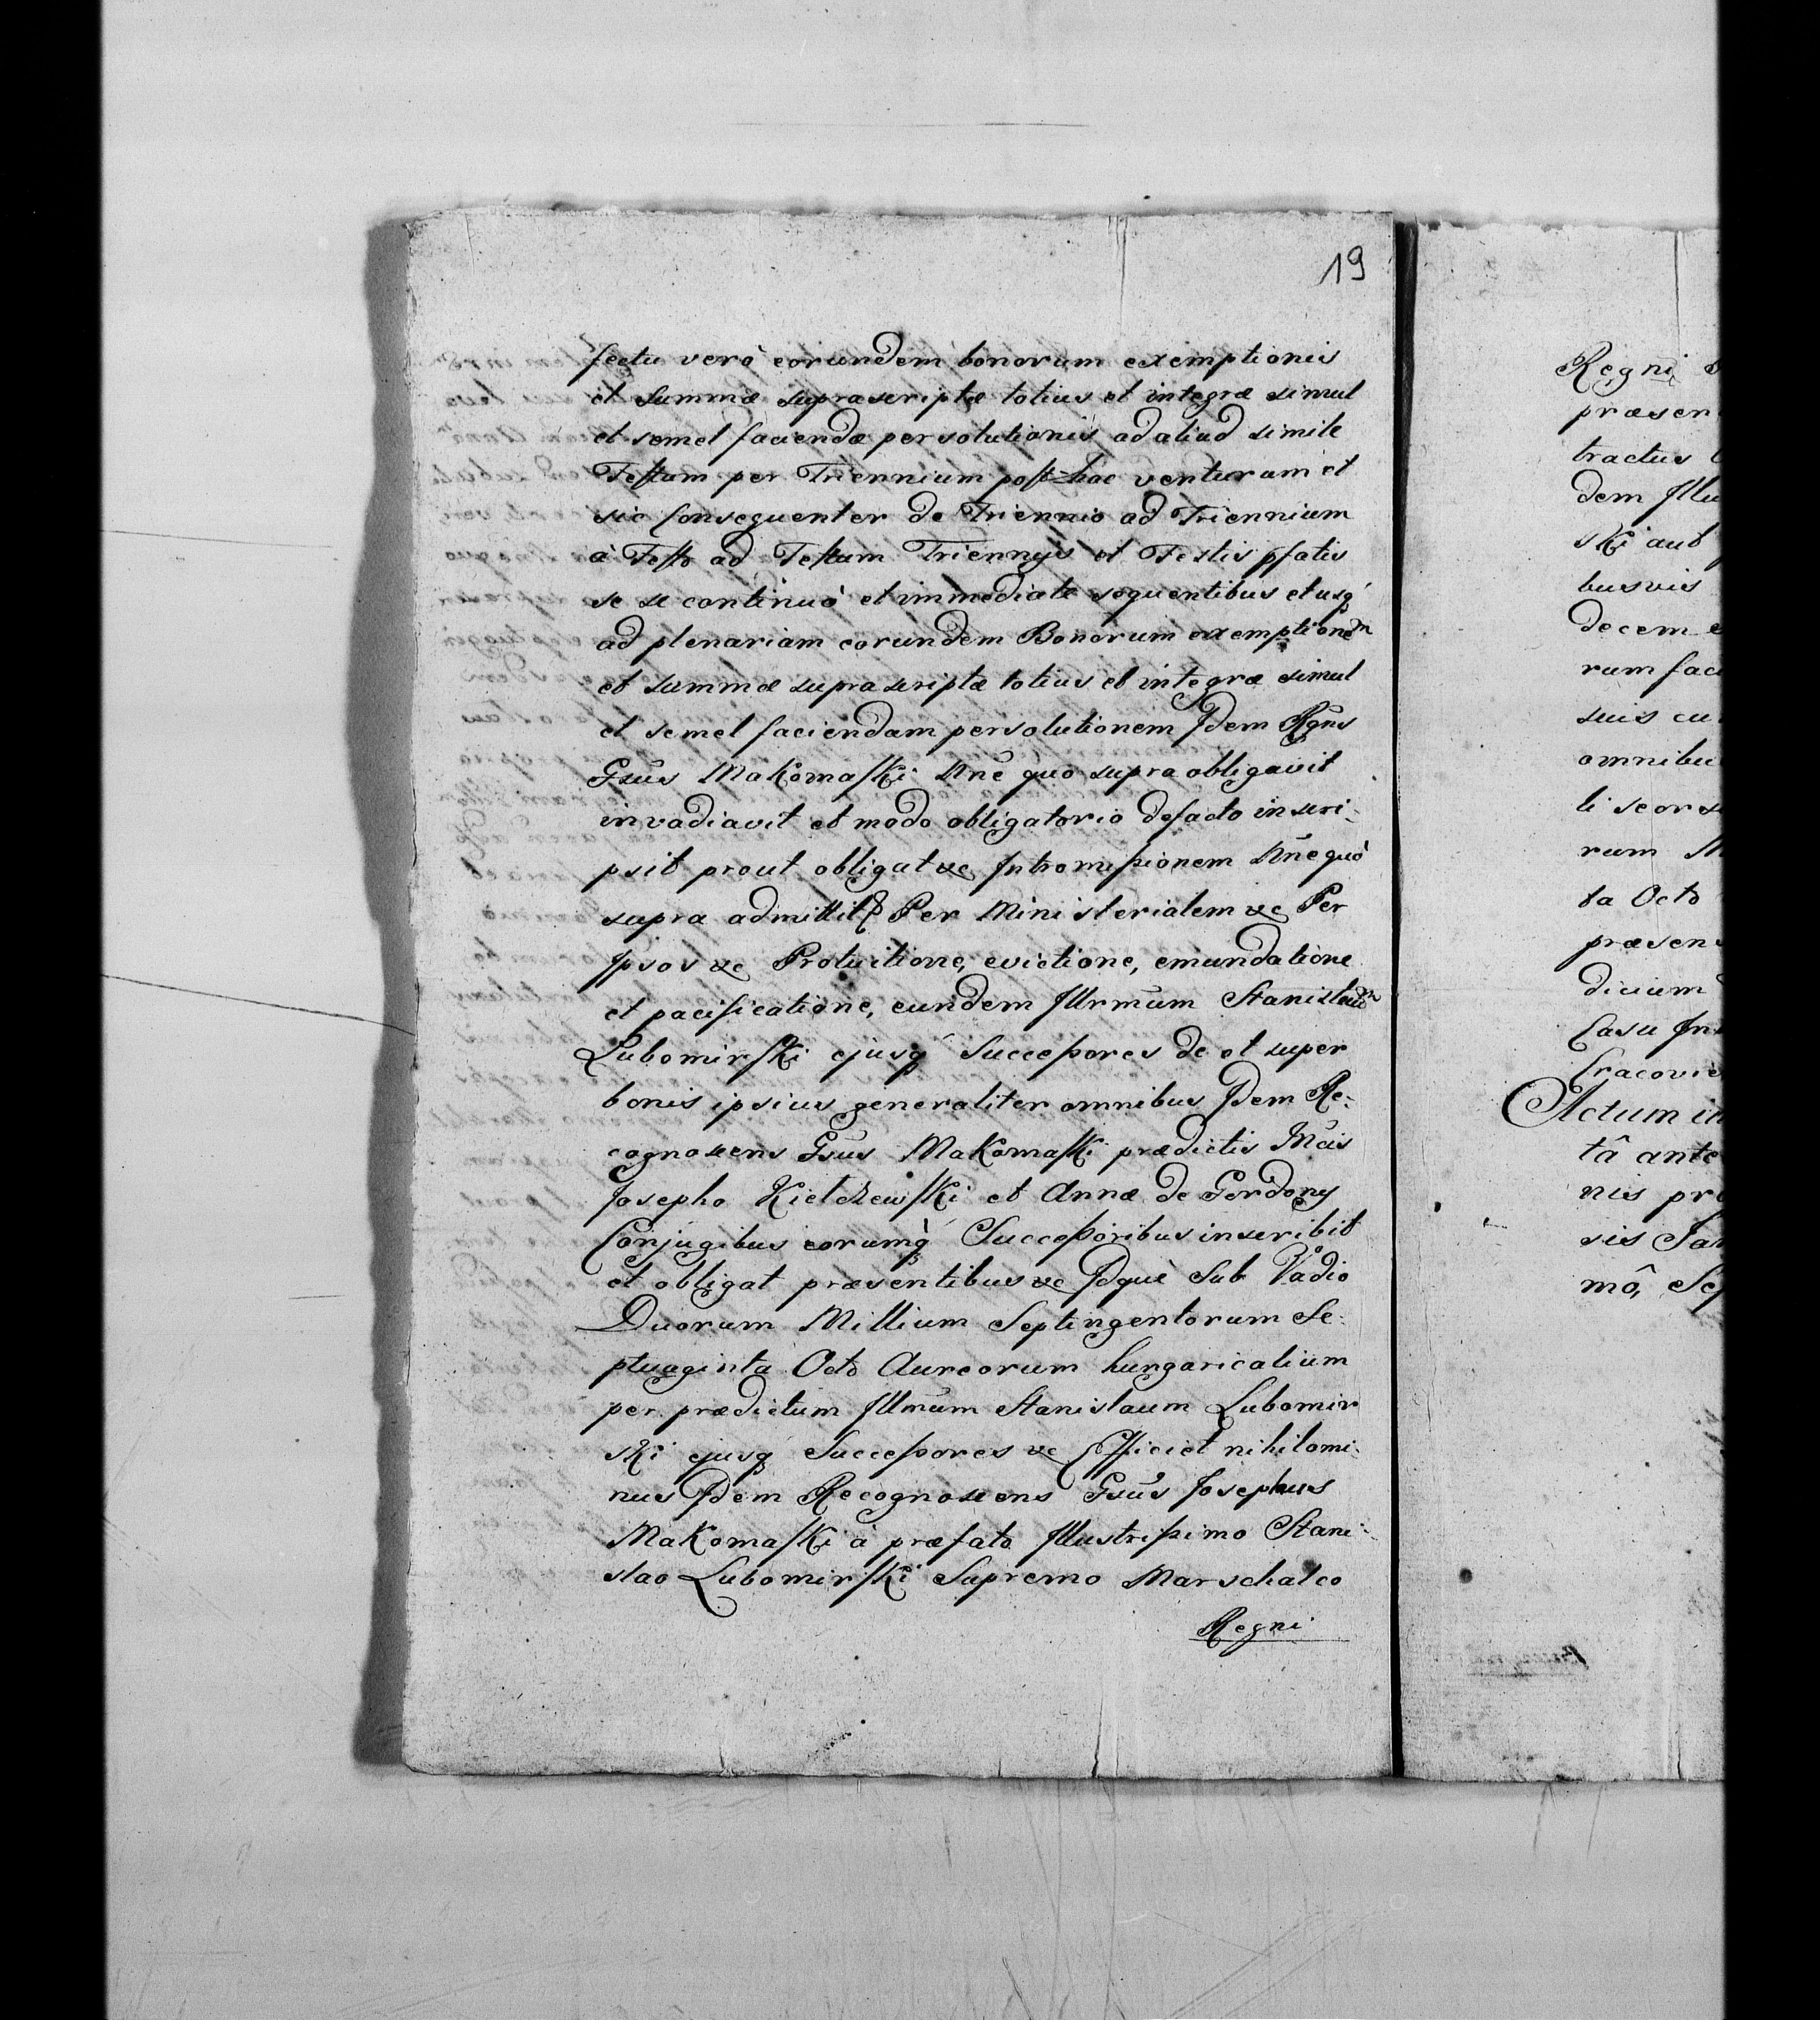 19
fectu verò eorundem bonorum exemptionis
et summæ suprascriptæ totius et integræ simul
et semel faciendæ persolutionis ad aliud simile
Festum per Triennium post-hac venturam et
sic consequenter de Triennio ad Triennium
à Festo ad Festum Triennijs et Festis pfatis
se se continuò et immediatè sequentibus et usq́
ad plenariam eorundem Bonorum exemptionem
et summæ suprascriptæ totius et integræ simul
et semel faciendam persolutionem Idem Rgns
Gsus Makomaski Nñe quo supra obligavit
invadiavit et modo obligatorio defacto inscri-
psit prout obligat &c Intromissionem Nñe quò
supra admittit Per Ministerialem &c Per
Ipsos &c Protuitione, evictione, emundatione
et pacificatione, eundem Illrmum Stanislaum
Lubomirski ejusq́ Successores de et super
bonis ipsius generaliter omnibus Idem Re-
cognoscens Gsus Makomaski prædictis
Josepho Kiełczewski et Annæ de Gordony
Conjugibus eorumq́ Successoribus inscribit
et obligat præsentibus &c Idquè Sub Vadio
Duorum Millium Septingentorum Se-
ptuaginta Octo Aureorum hungaricalium
per prædictum Illmum Stanislaum Lubomir
ski ejusq́ Successores &c Efficiet nihilomi-
nus Idem Recognoscens Gsus Josephus
Makomaski à præfato Illustrissimo Stani-
slao Lubomirski Supremo Marschalco
Regni
Regni
præsen
tractus
dem Illu
ski aut
busvis
decem
rum faci
suis cu
omnibu
li seors
rum M
ta Octo
præsen
dicium
Casu In
Cracovie
Actum in
tâ ante
nus pr
sis Jan
mô, Sep